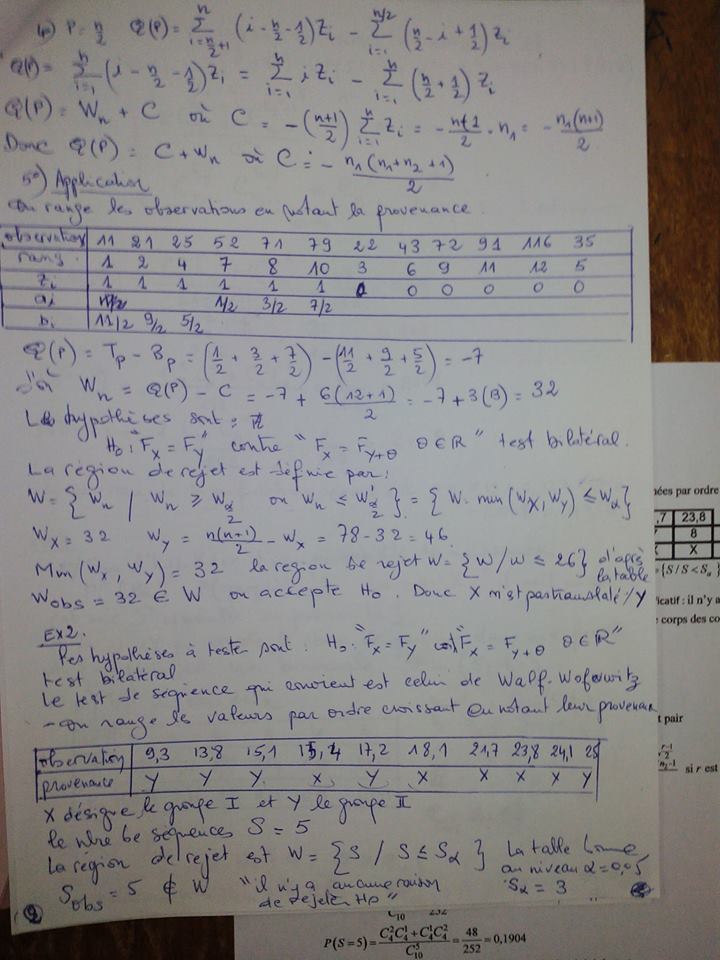 4°) P = n/2   Q(P) = Σ_{i=n/2+1}^{n} (i - n/2 - 1/2) Z_i - Σ_{i=1}^{n/2} (n/2 - i + 1/2) Z_i
Q(P) = Σ_{i=1}^{n} (i - n/2 - 1/2) Z_i = Σ_{i=1}^{n} i Z_i - Σ_{i=1}^{n} (n/2 + 1/2) Z_i
Q(P) = W_n + C où C = -(n+1/2) Σ_{i=1}^{n} Z_i = - n+1/2 · n_1 = - n_1(n+1)/2
Donc Q(P) = C + W_n où C = - n_1(n_1+n_2+1)/2
5°) Application
On range les observations en notant la provenance.
observation 11 21 25 52 71 79 22 43 72 91 116 35
rang 1 2 4 7 8 10 3 6 9 11 12 5
Z_i 1 1 1 1 1 1 0 0 0 0 0 0
a_i 1/2 3/2 7/2
b_i 11/2 9/2 5/2
Q(P) = T_p - B_p = (1/2 + 3/2 + 7/2) - (11/2 + 9/2 + 5/2) = -7
d'où W_n = Q(P) - C = -7 + 6(12+1)/2 = -7 + 3(13) = 32
Les hypothèses sont :
H_0 : "F_X = F_Y" contre "F_X = F_{Y+θ} θ ∈ ℝ" test bilatéral.
La région de rejet est définie par :
W = { W_n / W_n ≥ W_{α/2} ou W_n ≤ W'_{α/2} } = { W. min(W_X, W_Y) ≤ W_α }
W_X = 32 W_Y = n(n+1)/2 - W_X = 78 - 32 = 46
Min (W_X, W_Y) = 32 la région be rejet W = { W / W ≤ 26 } d'après la table
W_obs = 32 ∈ W on accepte H_0. Donc X n'est pas translaté / Y
EX2.
Les hypothèses à tester sont : H_0 : "F_X = F_Y" cont "F_X = F_{Y+θ} θ ∈ ℝ"
test bilatéral
Le test de séquence qui convient est celui de Walf-Wofowitz
- On range les valeurs par ordre croissant en notant leur provenan
observation 9,3 13,8 15,1 15,4 17,2 18,1 21,7 23,8 24,1 25
provenance Y Y Y X Y X X X X Y
X désigne le groupe I et Y le groupe II
le nbre be séquences S = 5
La région de rejet est W = { S / S ≤ S_α } La table donne
au niveau α = 0,05
S_α = 3
S_obs = 5 ∉ W "il n'y a aucune raison
de rejeter H_0"
2
ées par ordre
,7 23,8
8
X X
{S / S < S_α
ficatif : il n'y a
corps des co
t pair
si r est
C_10 252
P(S = 5) = C_4^2 C_4^1 + C_4^1 C_4^2 / C_10^5 = 48/252 = 0,1904